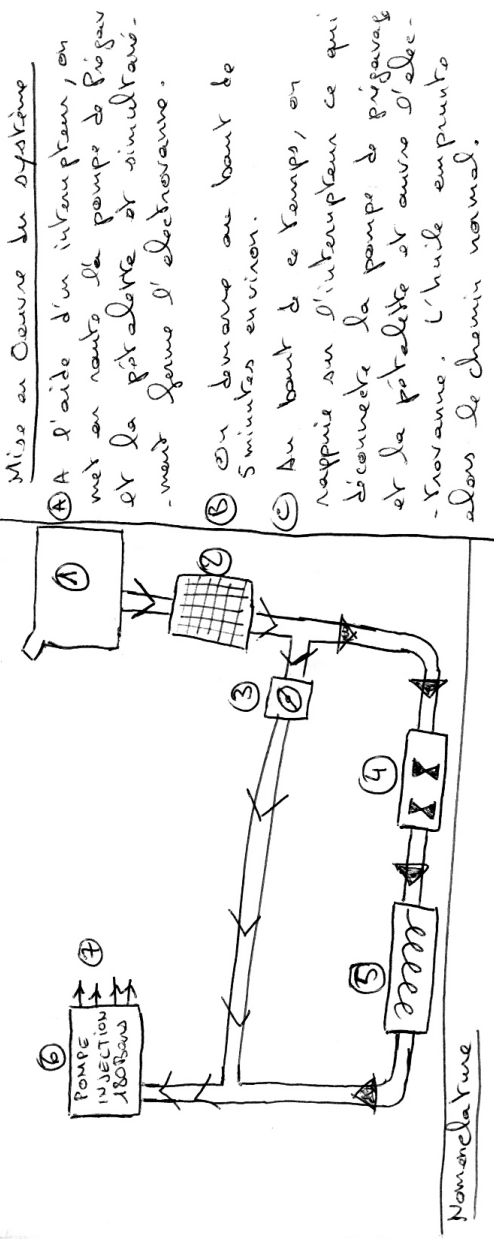 Mise en Oeuvre du système
Ⓐ A l'aide d'un interrupteur, on
met en route la pompe de prégavage
et la pétolette et simultané-
-ment ferme l'électrovanne.
Ⓑ On démarre au bout de
5 minutes environ.
Ⓒ Au bout de ce temps, on
rappuie sur l'interrupteur ce qui
déconnecte la pompe de prégavage
et la pétolette et ouvre l'élec-
-trovanne. L'huile emprunte
alors le chemin normal.
①
②
③
④
⑤
⑥
POMPE
INJECTION
180Bars
⑦
Nomenclature